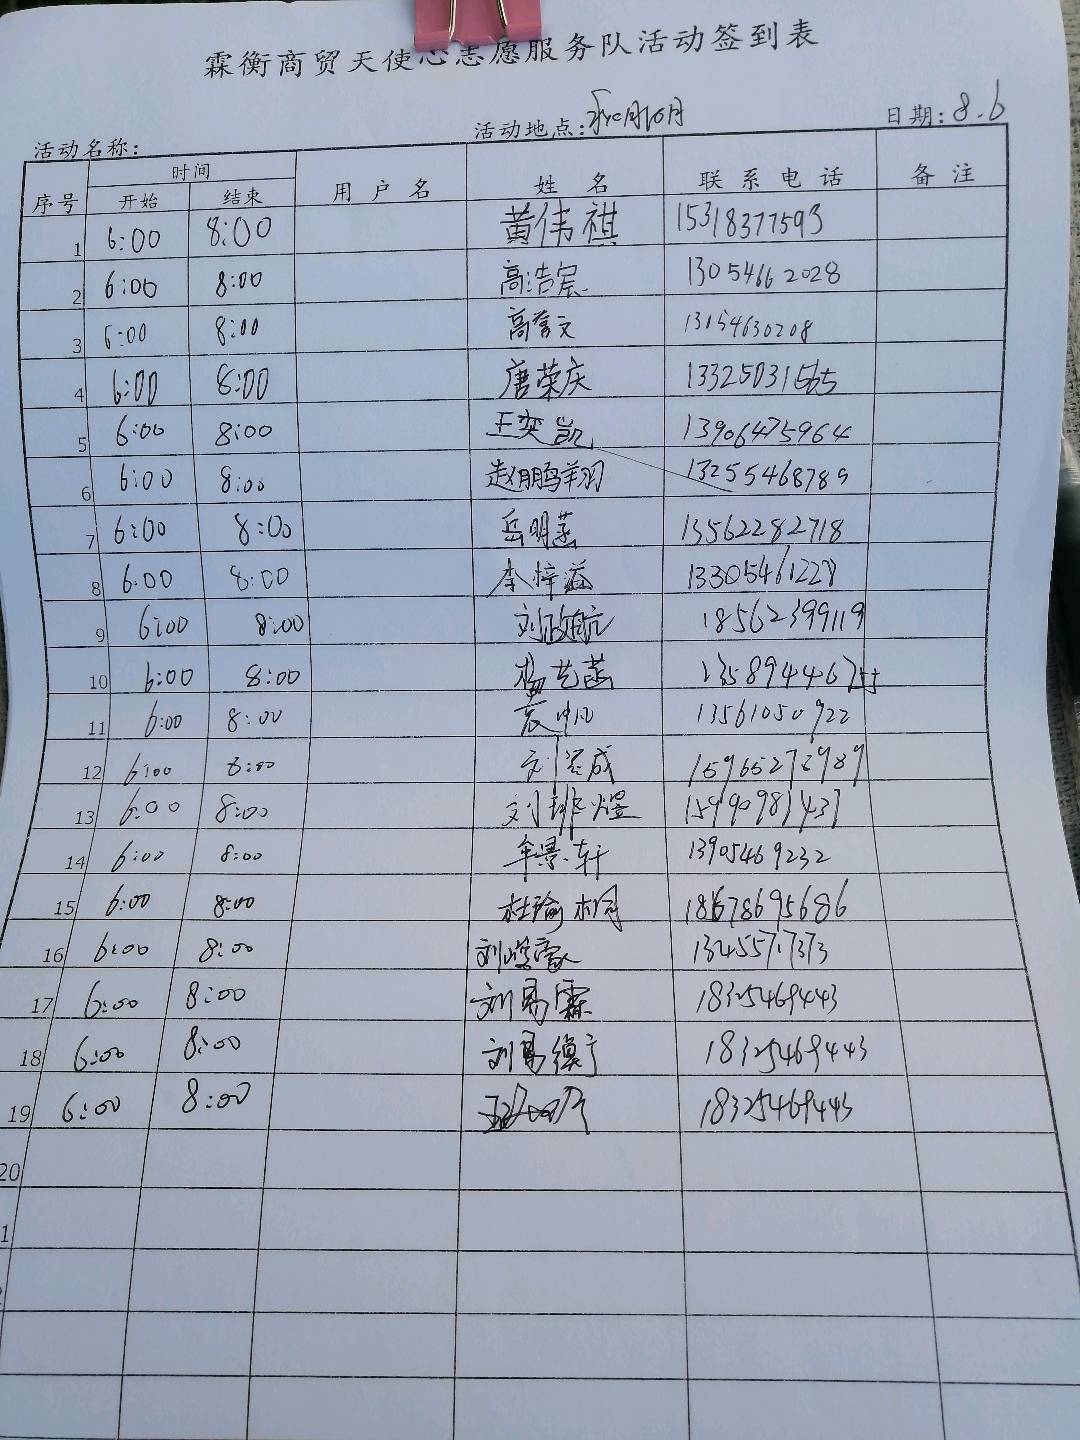 霖衡商贸天使心志愿服务队活动签到表
活动名称: 活动地点: 日期: 8.6
序号 时间 用户名 姓名 联系电话 备注
开始 结束
1 6:00 8:00 黄伟祺 15318377593
2 6:00 8:00 高浩宸 13054662028
3 6:00 8:00 高誉文 13054630208
4 6:00 8:00 唐荣庆 13325031565
5 6:00 8:00 王奕凯 13906475964
6 6:00 8:00 赵鹏翔 13255468789
7 6:00 8:00 岳明 13562282718
8 6:00 8:00 李梓 13305461228
9 6:00 8:00 刘政航 18562399119
10 6:00 8:00 杨艺菡
11 6:00 8:00 13561050922
12 6:00 8:00 刘 成 15965272989
13 6:00 8:00 刘 煜
14 6:00 8:00 牟景轩 13905469232
15 6:00 8:00 杜瑜桐 18678695686
16 6:00 8:00 刘 13455717373
17 6:00 8:00 刘易霖 18325469443
18 6:00 8:00 刘易 18325469443
19 6:00 8:00 18325469443
20